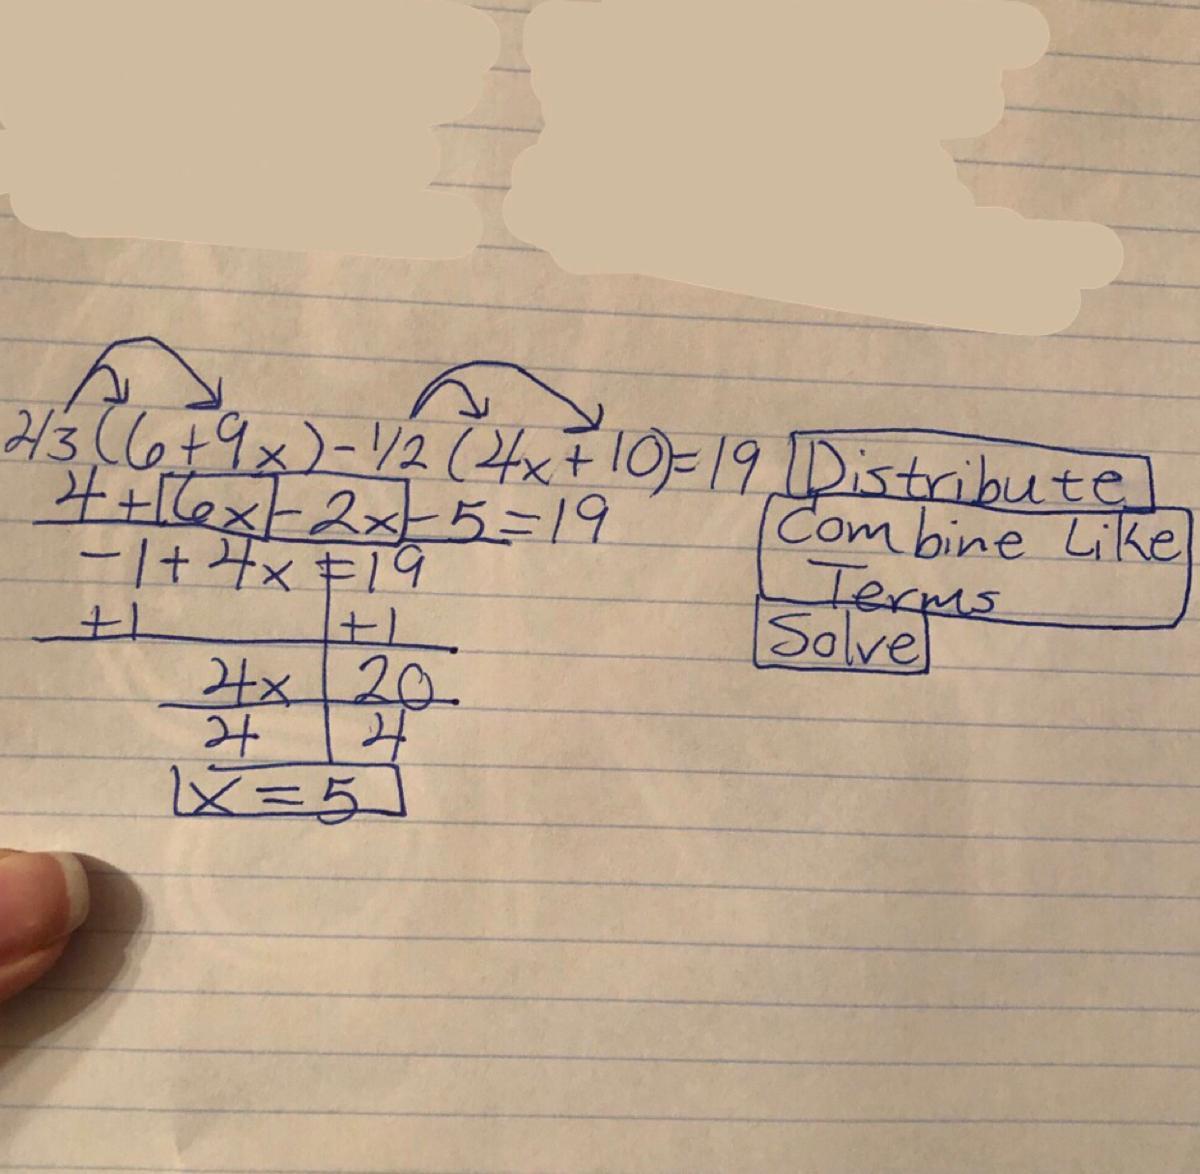 2/3(6+9x)-1/2(4x+10)=19 Distribute
4+6x-2x-5=19 Combine Like
-1+4x=19 Terms
+1 +1 Solve
4x 20
4 4
x=5